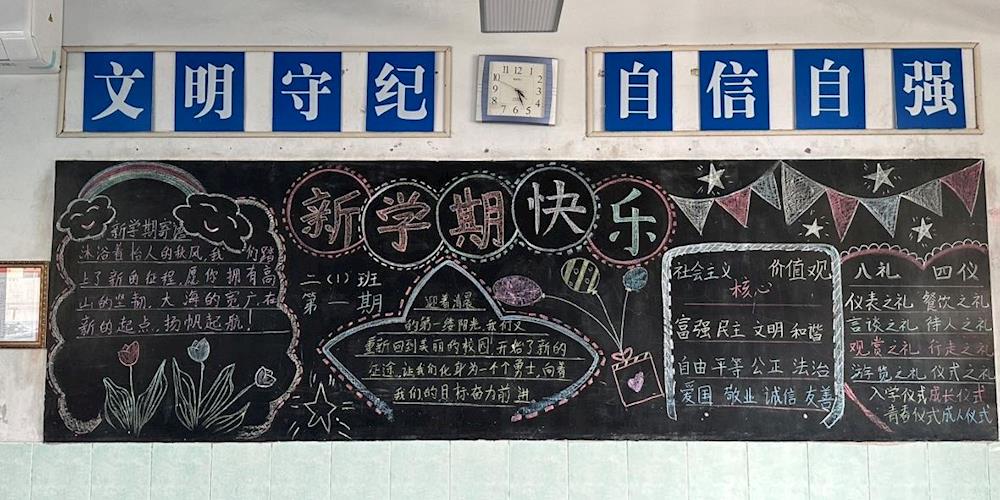 文明守纪
自信自强
新学期快乐
新学期寄语
沐浴着怡人的秋风,我们踏
上了新的征程,愿你拥有高
山的坚韧,大海的宽广,在
新的起点,扬帆起航!
二(1)班
第一期
迎着清晨
的第一缕阳光,我们又
重新回到美丽的校园,开始了新的
征途,让我们化身为一个个勇士,向着
我们的目标奋力前进
社会主义 价值观
核心
富强 民主 文明 和谐
自由 平等 公正 法治
爱国 敬业 诚信 友善
八礼 四仪
仪表之礼 餐饮之礼
言谈之礼 待人之礼
观赏之礼 行走之礼
游览之礼 仪式之礼
入学仪式 成长仪式
青春仪式 成人仪式